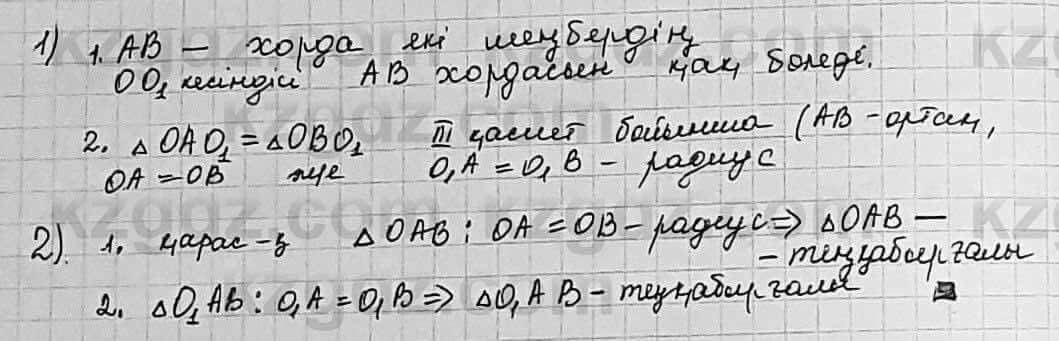 1) 1. AB — хорда екі шеңбердің
OO₁ кесіндісі AB хордасын қақ бөледі.
2. △OAO₁ = △OBO₁ III қасиет бойынша (AB - ортақ,
OA = OB және O₁A = O₁B - радиус
2). 1. қарас-з △OAB : OA = OB - радиус ⇒ △OAB —
- теңқабырғалы
2. △O₁AB : O₁A = O₁B ⇒ △O₁AB - теңқабырғалы